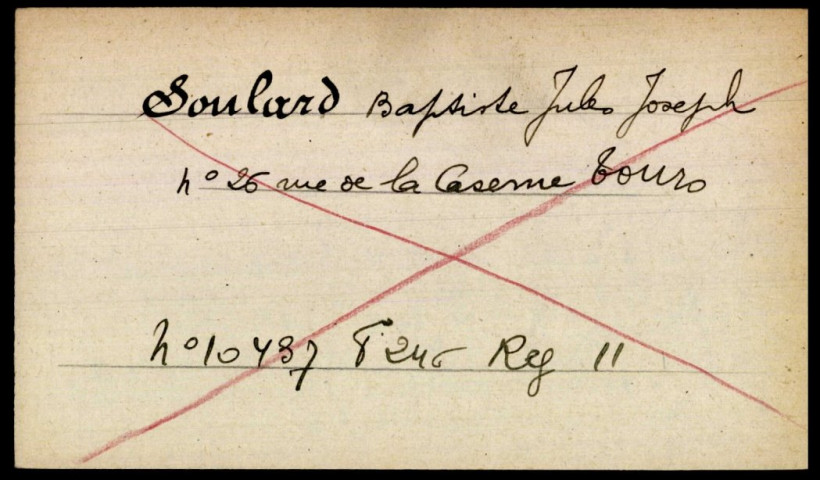 Soulard Baptiste Jules Joseph
n° 26 rue de la Caserne Tours
n° 10437 F 246 Reg 11